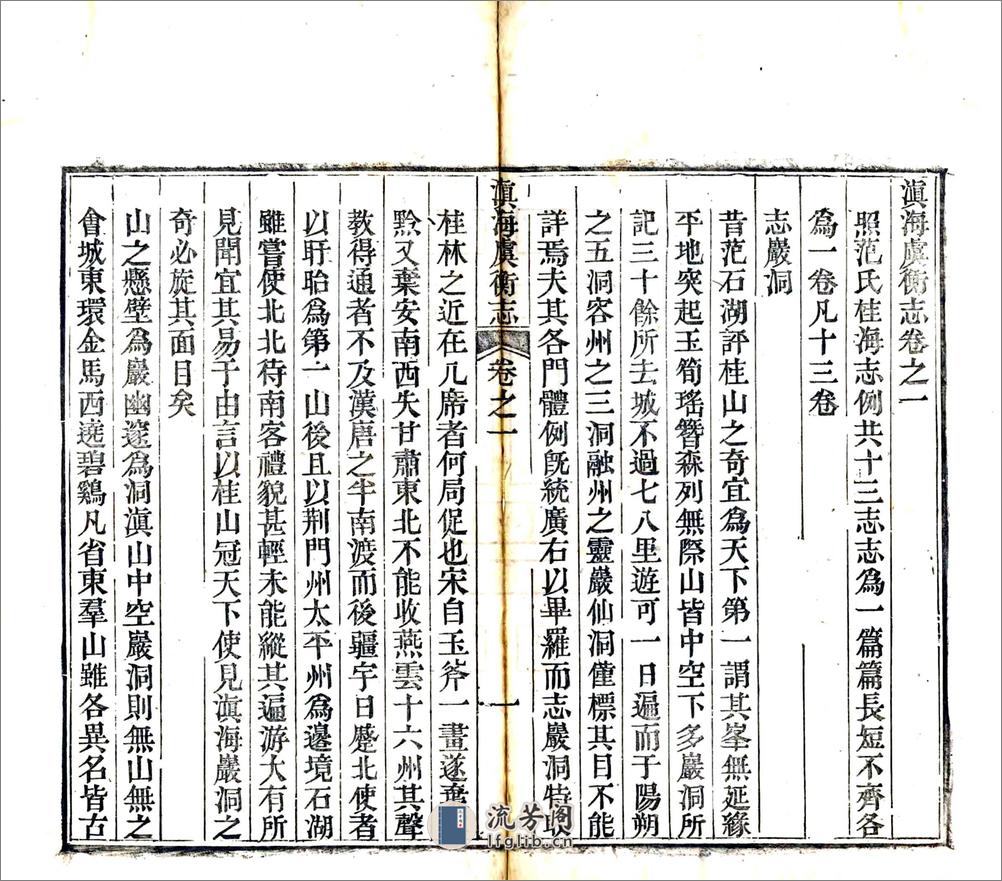 滇海虞衡志卷之一
照范氏桂海志例共十三志志為一篇篇長短不齊各
為一卷凡十三卷
志巖洞
昔范石湖評桂山之奇宜為天下第一謂其峯無延緣
平地突起玉筍瑤簪森列無際山皆中空下多巖洞所
記三十餘所去城不過七八里遊可一日遍而于陽朔
之五洞容州之三洞融州之靈巖仙洞僅標其目不能
詳焉夫其各門體例既統廣右以畢羅而志巖洞特取
滇海虞衡志 卷之一 一
桂林之近在几席者何局促也宋自玉斧一畫遂棄
黔又棄安南西失甘肅東北不能收燕雲十六州其聲
教得通者不及漢唐之半南渡而後疆宇日蹙北使者
以盱眙為第一山後且以荆門州太平州為邊境石湖
雖嘗使北北待南客禮貌甚輕未能縱其遍游大有所
見聞宜其易于由言以桂山冠天下使見滇海巖洞之
奇必旋其面目矣
山之懸壁為巖幽邃為洞滇山中空巖洞則無山無之
會城東環金馬西遶碧鷄凡省東羣山雖各異名皆古
流芳閣
lfglib.cn